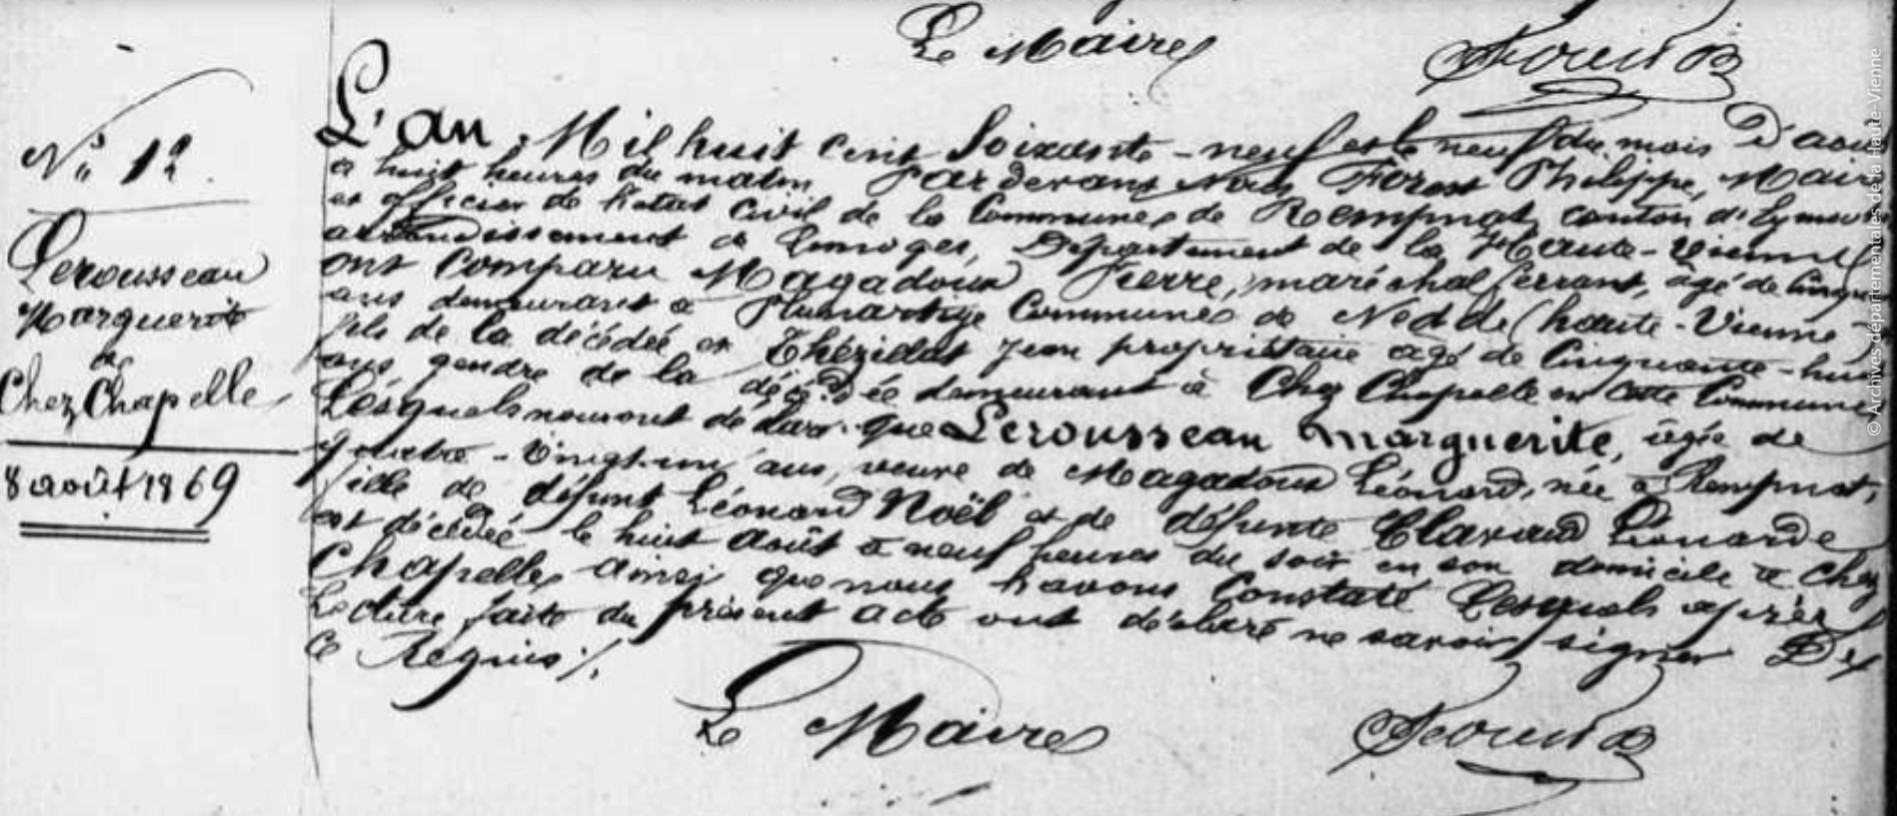 Le Maire
No 12
Lerousseau
Marguerite
de
Chez Chapelle
8 août 1869
L'an Mil huit cent soixante-neuf et le neuf du mois d'aou
a huit heures du matin Par devant Nous Forest Philippe, Mair
et officier de l'etat Civil de la Commune de Rempnat, canton d'Eymou
arrondissement de Limoges, Département de la Haute-Vienne
ont Comparu Magadoux Pierre, maréchal ferrant, âgé de Cinqu
ans demeurant à Commune de Nedde (haute-Vienne
fils de la décédée et Thézillat Jean propriétaire âgé de Cinquante-hui
ans gendre de la décédée demeurant à Chez Chapelle en cette Commune
Lesquels nous ont déclaré que Lerousseau Marguerite, âgée de
quatre-vingt-un ans, veuve de Magadoux Léonard, née à Rempnat,
fille de défunt Léonard Noël et de défunte Clavaud Léonarde
est décédée le huit Août à neuf heures du soir en son domicile à Chez
Chapelle, ainsi que nous l'avons Constaté Lesquels après
Lecture faite du présent acte ont déclaré ne savoir signer De
ce Requis ./.
Le Maire
© Archives départementales de la Haute-Vienne